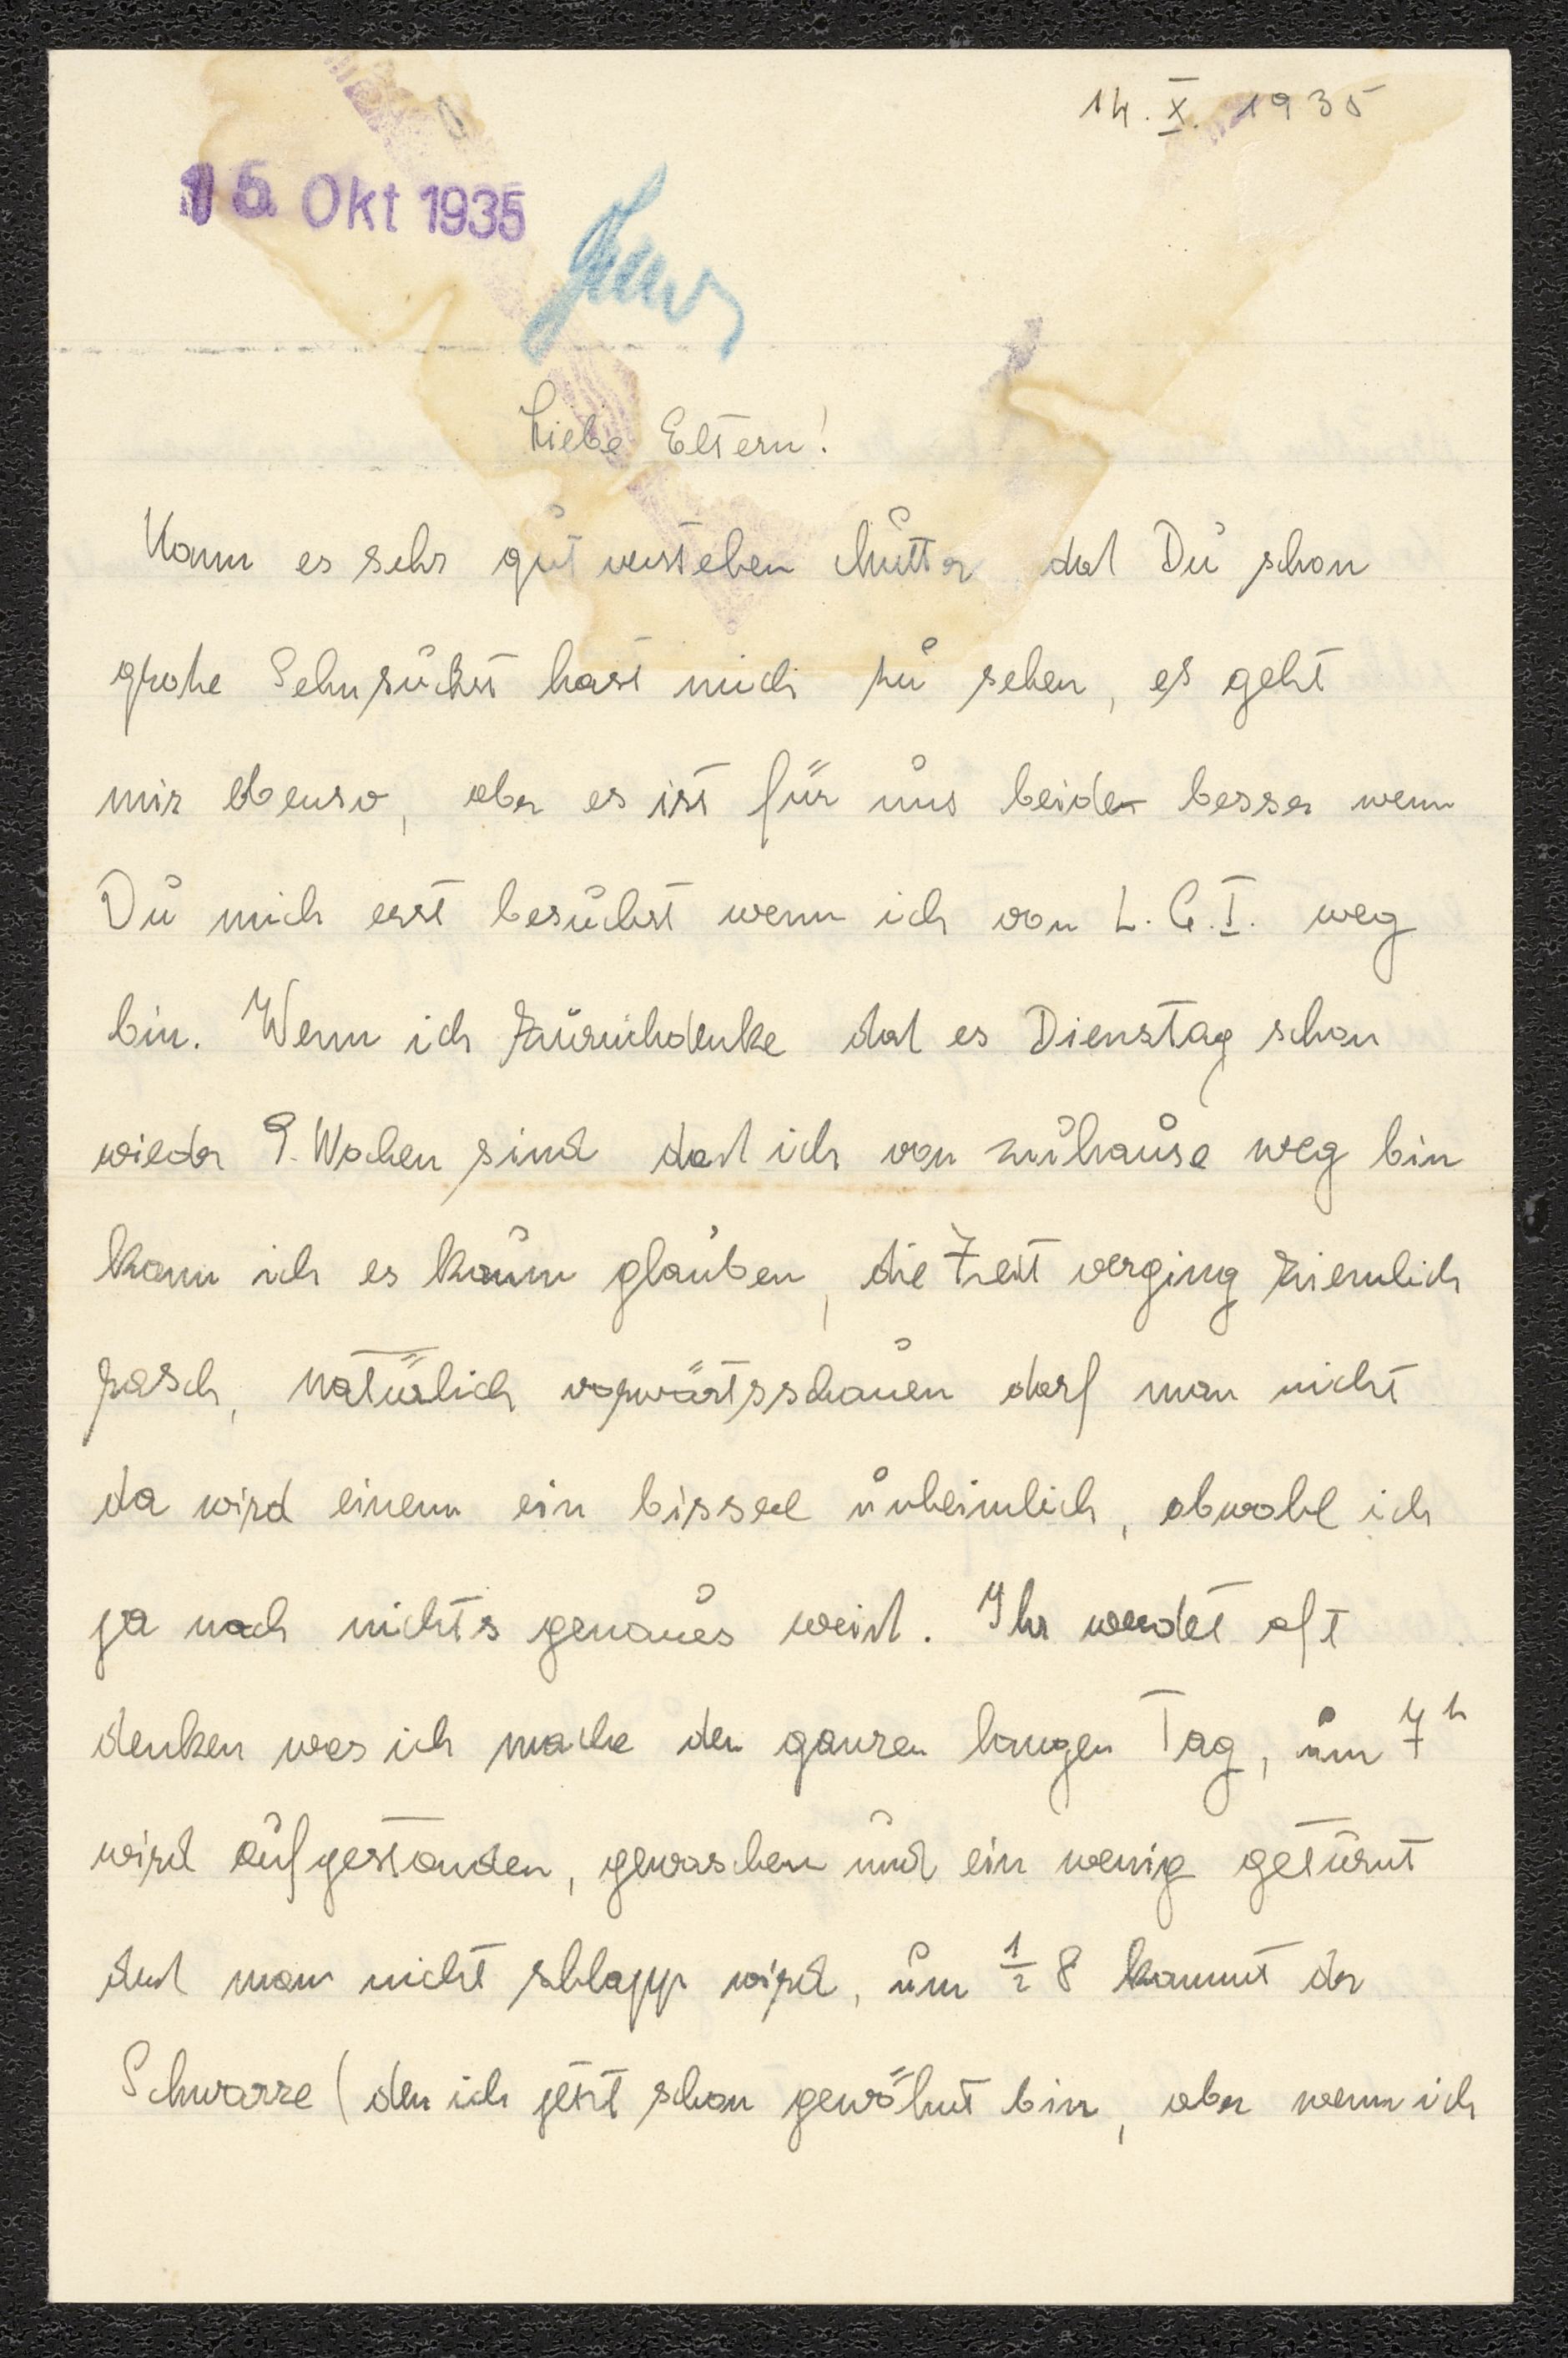 14. X. 1935
15. Okt 1935
Liebe Eltern!
Kann es sehr gut verstehen Mutter daß Du schon
große Sehnsucht hast mich zu sehen, es geht
mir ebenso, aber es ist für uns beide besser wenn
Du mich erst besuchst wenn ich von L. G. I. weg
bin. Wenn ich zurückdenke daß es Dienstag schon
wieder 9. Wochen sind daß ich von zuhause weg bin
kann ich es kaum glauben, die Zeit verging ziemlich
rasch, natürlich vorwärtsschauen darf man nicht
da wird einem ein bisserl unheimlich, obwohl ich
ja noch nichts genaues weiß. Ihr werdet oft
denken was ich mache den ganzen langen Tag, um 7h
wird aufgestanden, gewaschen und ein wenig geturnt
daß man nicht schlapp wird, um 1/2 8 kommt der
Schwarze (den ich jetzt schon gewöhnt bin, aber wenn ich